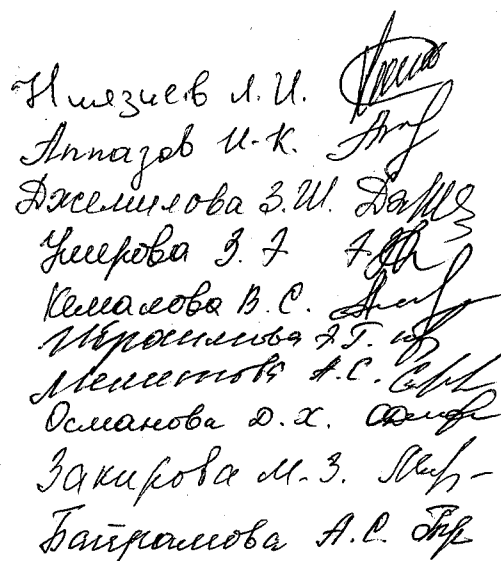 Ниязиев Л. И.
Аппазов И. К.
Джемилова З. Ш.
Умерова З. Э
Кемалова В. С.
Ибраимова Э Г.
Меметова А. С.
Османова Д. Х.
Закирова М. З.
Байрамова А. С.